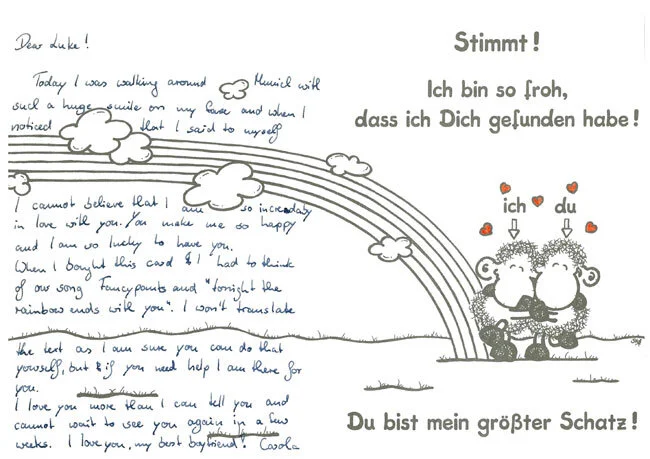 Dear Luke!
Today I was walking around Munich with
such a huge smile on my face and when I
noticed that I said to myself
I cannot believe that I am so incredably
in love with you. You make me so happy
and I am so lucky to have you.
When I bought this card & I had to think
of our song Fancypants and "tonight the
rainbow ends with you". I won't translate
the text as I am sure you can do that
yourself, but if you need help I am there for
you.
I love you more than I can tell you and
cannot wait to see you again in a few
weeks. I love you, my best boyfriend! Carola
Stimmt!
Ich bin so froh,
dass ich Dich gefunden habe!
ich du
Du bist mein größter Schatz!